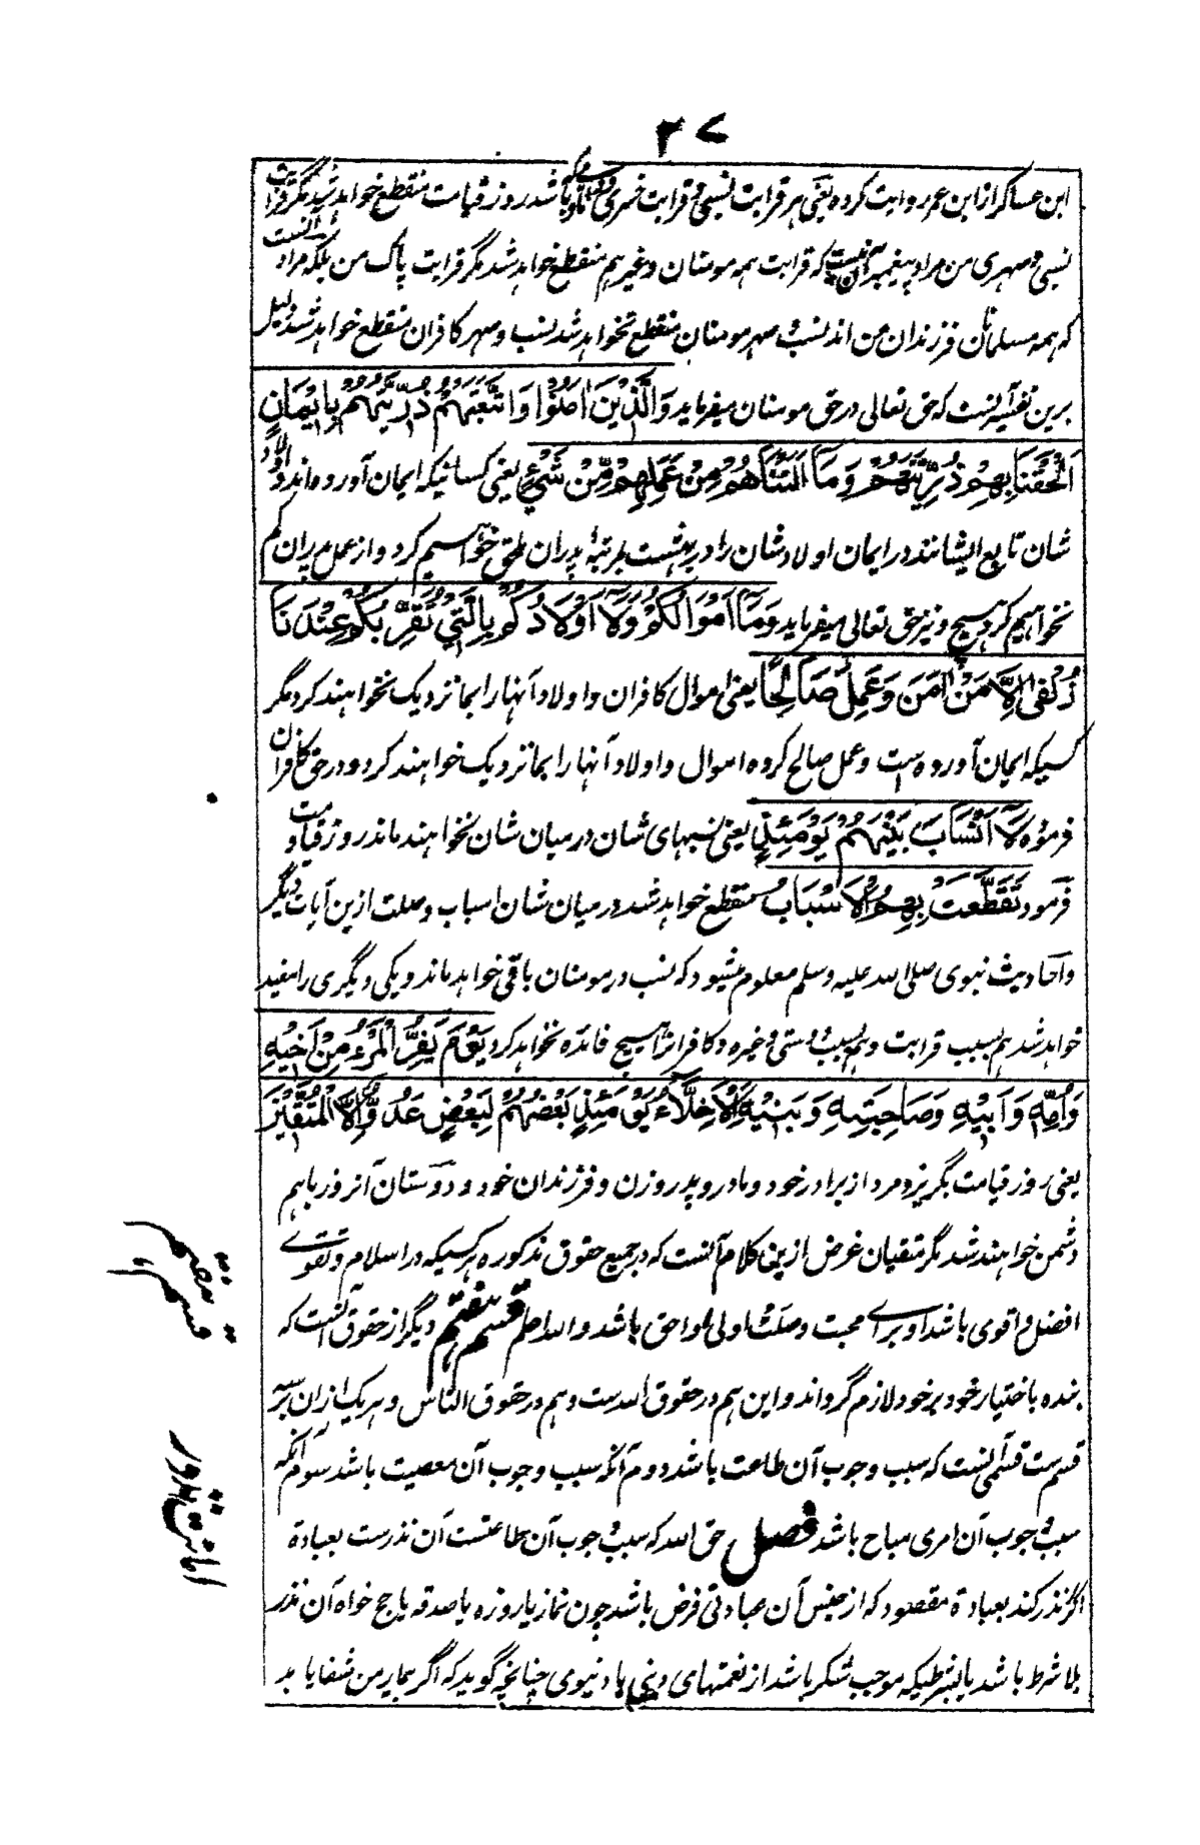 ۲۷
ابن عساکر از ابن عمر روایت کرده یعنی هر قرابت نسبی و قرابت خسری و باشد روز قیامت منقطع خواهد شد مگر قرابت
نسبی و صهری من مراد پیغمبر آن نیست که قرابت همه مومنان و غیرهم منقطع خواهد شد مگر قرابت پاک من بلکه مراد آنست
که همه مسلمانان فرزندان من اند نسب و صهر مومنان منقطع نخواهد شد نسب و صهر کافران منقطع خواهد شد دلیل
برین تفسیر آنست که حق تعالی در حق مومنان میفرماید وَالَّذِیْنَ اٰمَنُوْا وَاتَّبَعَتْهُمْ ذُرِّیَّتُهُمْ بِاِیْمَانٍ
اَلْحَقْنَا بِهِمْ ذُرِّیَّتَهُمْ وَمَا اَلَتْنَاهُمْ مِنْ عَمَلِهِمْ مِّنْ شَیْءٍ یعنی کسانیکه ایمان آورده‌اند و اولاد
شان تابع ایشانند در ایمان اولاد شان را در بهشت بمرتبهٔ پدران ملحق خواهیم کرد و از عمل پدران کم
نخواهیم کرد هیچ و نیز حق تعالی میفرماید وَمَا اَمْوَالُکُمْ وَلَا اَوْلَادُکُمْ بِالَّتِیْ تُقَرِّبُکُمْ عِنْدَنَا
زُلْفٰی اِلَّا مَنْ اٰمَنَ وَعَمِلَ صَالِحًا یعنی اموال کافران و اولاد آنها را بما نزدیک نخواهند کرد مگر
کسیکه ایمان آورده است و عمل صالح کرده اموال و اولاد آنها را بما نزدیک خواهند کرد و در حق کافران
فرموده لَا اَنْسَابَ بَیْنَهُمْ یَوْمَئِذٍ یعنی نسبهای شان در میان شان نخواهند ماند روز قیامت و
فرمود تَقَطَّعَتْ بِهِمُ الْاَسْبَابُ منقطع خواهد شد در میان شان اسباب وصلت ازین آیات دیگر
و احادیث نبوی صلی الله علیه وسلم معلوم میشود که نسب در مومنان باقی خواهد ماند و یکی دیگری را مفید
خواهد شد هم بسبب قرابت و هم بسبب دوستی و غیره و کافران را هیچ فائده نخواهد کرد یَوْمَ یَفِرُّ الْمَرْءُ مِنْ اَخِیْهِ
وَاُمِّهِ وَاَبِیْهِ وَصَاحِبَتِهِ وَبَنِیْهِ اَلْاَخِلَّاءُ یَوْمَئِذٍ بَعْضُهُمْ لِبَعْضٍ عَدُوٌّ اِلَّا الْمُتَّقِیْنَ
یعنی روز قیامت بگریزد مرد از برادر خود و مادر و پدر و زن و فرزندان خود و دوستان آنروز باهم
دشمن خواهند شد مگر متقیان غرض ازین کلام آنست که در جمیع حقوق مذکوره هرکسیکه در اسلام و تقوے
افضل و اقوی باشد او براے محبت و صلت اولی و احق باشد والله اعلم قسم هفتم دیگر از حقوق آنست که
بنده باختیار خود بر خود لازم گرداند و این هم در حقوق الله ست و هم در حقوق الناس و هر یک ازان بر سه
قسم ست قسمی آنست که سبب وجوب آن طاعت باشد دوم آنکه سبب وجوب آن معصیت باشد سوم آنکه
سبب وجوب آن امری مباح باشد فصل حق الله که سبب وجوب آن طاعتست آن نذرست بعبادة
اگر نذر کند بعبادة مقصود که از جنس آن عبادتی فرض باشد چون نماز یا روزه یا صدقه یا حج خواه آن نذر
بلا شرط باشد یا بشرطیکه موجب شکر باشد از نعمتهای دینی یا دنیوی چنانچه گوید که اگر بیمار من شفا یابد
قسم هفتم